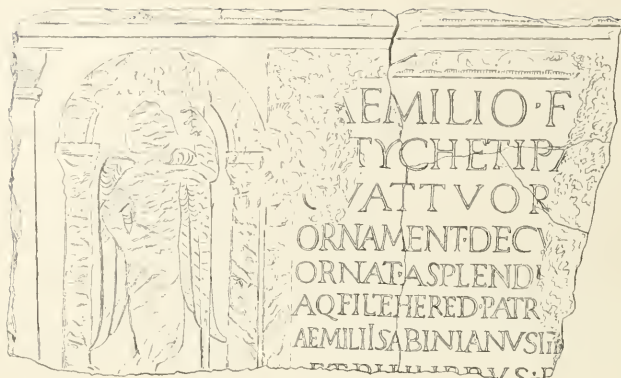 AEMILIO · F
TYCHETI PA
QVATTVOR
ORNAMENT · DECV
ORNAT · A SPLENDI
AQ FIL E HERED · PATR
AEMILII SABINIANVS